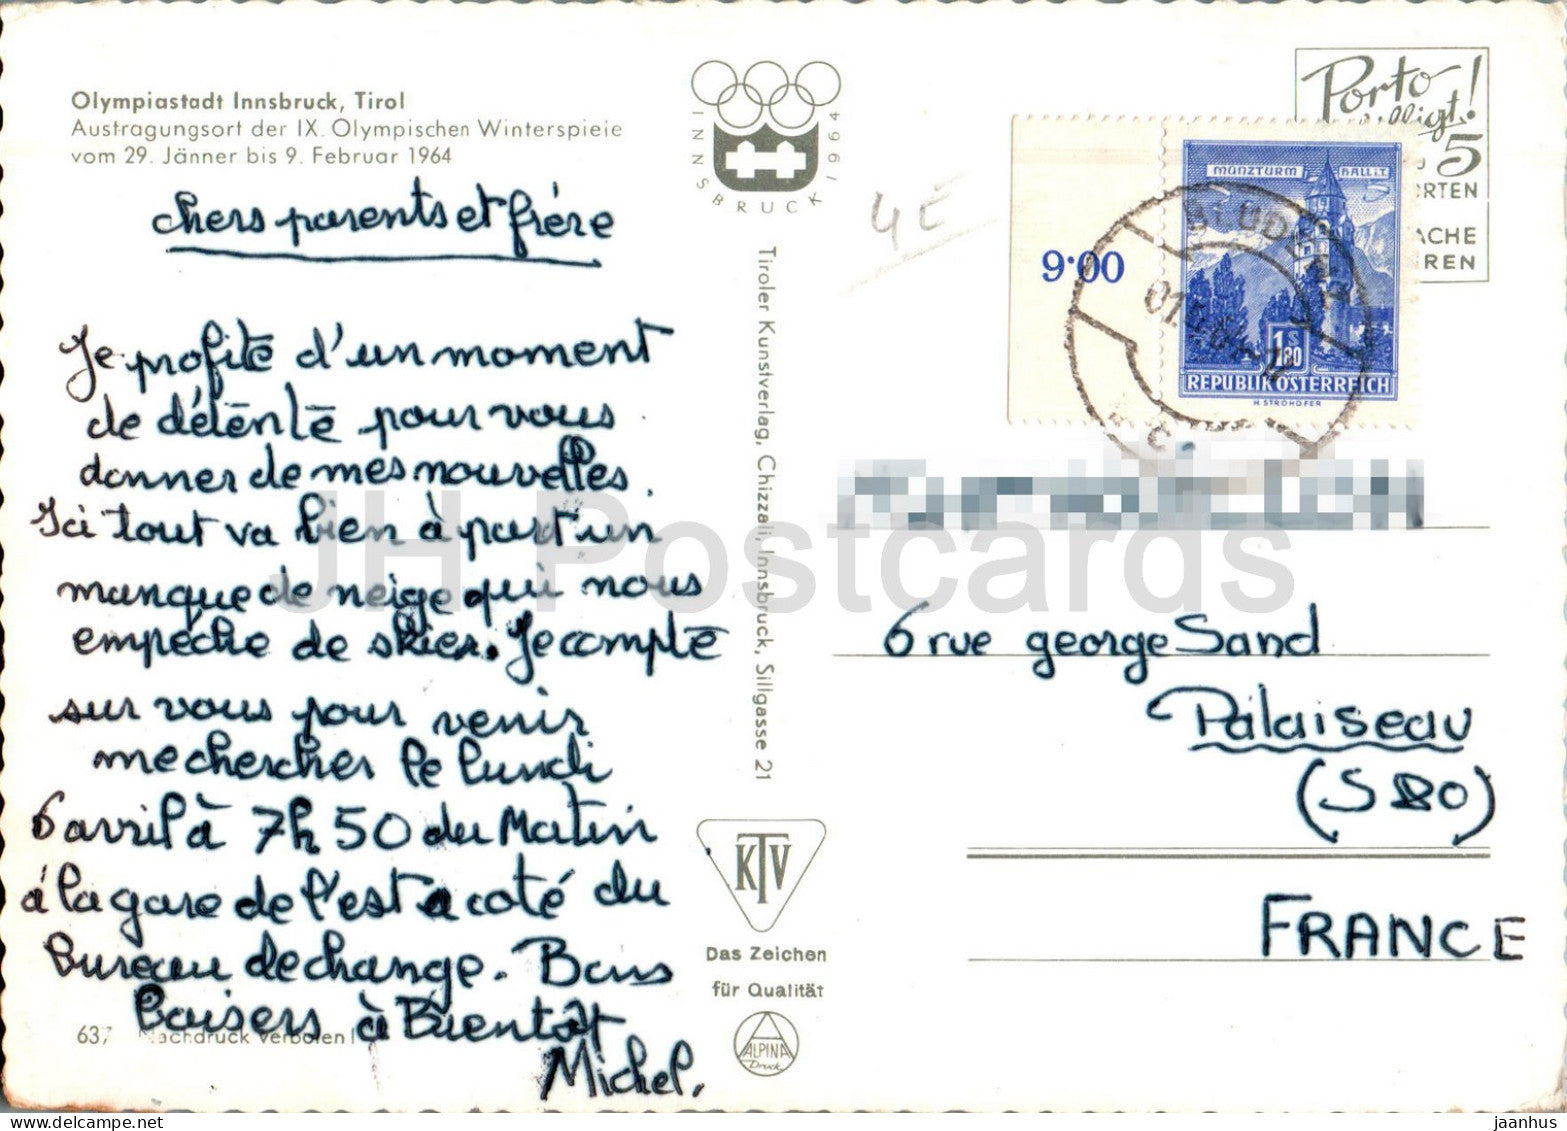 Olympiastadt Innsbruck, Tirol
Austragungsort der IX. Olympischen Winterspiele
vom 29. Jänner bis 9. Februar 1964
INNSBRUCK 1964
Porto
5
ORTEN
ACHE
REN
4E
9·00
MÜNZTURM HALL i.T.
BLUDENZ
1.80
S
REPUBLIK ÖSTERREICH
H. STROHOFER
chers parents et frère
Je profite d'un moment
de détente pour vous
donner de mes nouvelles.
Ici tout va bien à part un
manque de neige qui nous
empêche de skier. Je compte
sur vous pour venir
me chercher le lundi
6 avril à 7h50 du Matin
à la gare de l'est a coté du
bureau de change. Bons
baisers à Bientôt
Michel.
637 Nachdruck verboten!
Tiroler Kunstverlag, Chizzali, Innsbruck, Sillgasse 21
KTV
Das Zeichen
für Qualität
ALPINA
Druck
6 rue george Sand
Palaiseau
(S&O)
FRANCE
JH Postcards
www.delcampe.net
jaanhus